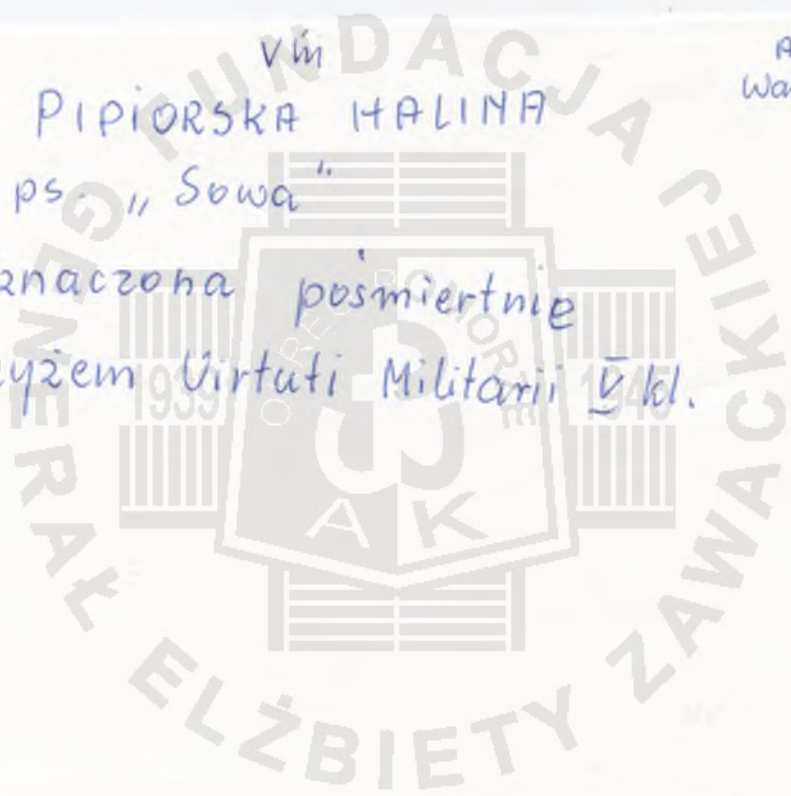 VM
PIPIORSKA HALINA
ps. „Sowa"
znaczona pośmiertnie
yżem Virtuti Militarii V kl.
FUNDACJA
GENERAŁ ELŻBIETY ZAWACKIEJ
OKRĘG POMORZE
1939 1945
AK